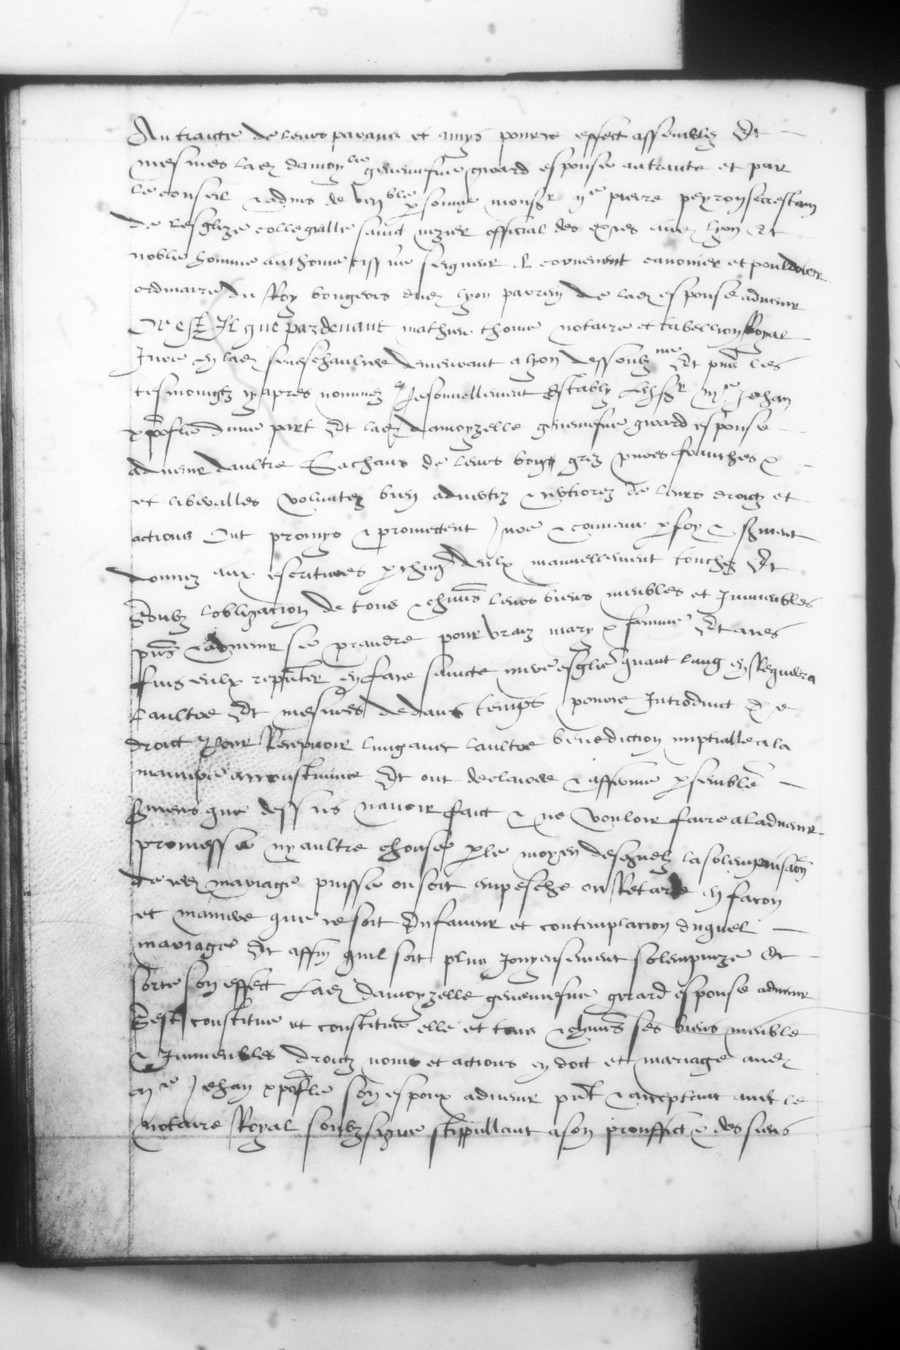 Au traicte de leurs parans et amys pource effect assemblez Et
mesmes lad damoylle genevefue girard espouse autraicte et par
le conseil &advis de venble personne monsr me pierre secrestain
de lesglize collegialle sainct nizier official des exces aud lyon Et
noble homme anthoine seigneur & canonier et
ordinaire du Roy bourgeois dud lyon parrin de lad espouse advenir
Or est Il que pardevant mathieu thome notaire et tabellion Royal
Jure en lad seneschaulcee demeurant a lyon dessoubzne Et pns les
tesmoingtz cyapres nommez personnellement Establyz Ledsr me Jehan
xpofle dune part Et lad damoyzelle genevefue girard espouse
advenir daultre Sachans de leurs bons grez pures franches &
et liberalles voluntez bien advertiz & certiorez de leurs droictz et
actions Ont promys & promectent Jure & convenu par foy & serment
donnez aux escriptures par chun deulx manuellement touchez Et
Soubz lobligation de tous &chuns leurs biens meubles et Immeubles
pns &advenir se prandre pour vraiz mary & famme Et aces
fins eulx repnter en face saincte mere esglize quant lung en Requerra
laultre Et mesmes dedans temps pource Introduict de
droict pour Recepvoir lung avec laultre benediction nuptialle a la
maniere accoustumee Et ont declaire & afferme par semble
Serment que dessus navoir faict & ne vouloir faire aladvenir
promesse ny aultre chouse par le moyen desquelz la solempnisaon
de ced mariage puisse ou soit empesche ou Retarde en facon
et maniere que ce soit En faveur et contemplacion duquel
mariage Et affin quil soit plus Joyeusement solempnize Et
sorte son effect Lad damoyzelle genevefue girard espouse advenir
Sest constitue et constitue elle et tous &chuns ses biens meuble
& Immeubles droictz noms et actions en dot et mariage aud
me Jehan xpofle son espoux advenir pnt & acceptant avec le
notaire Royal soubzsigne stippullant a son prouffict & des siens